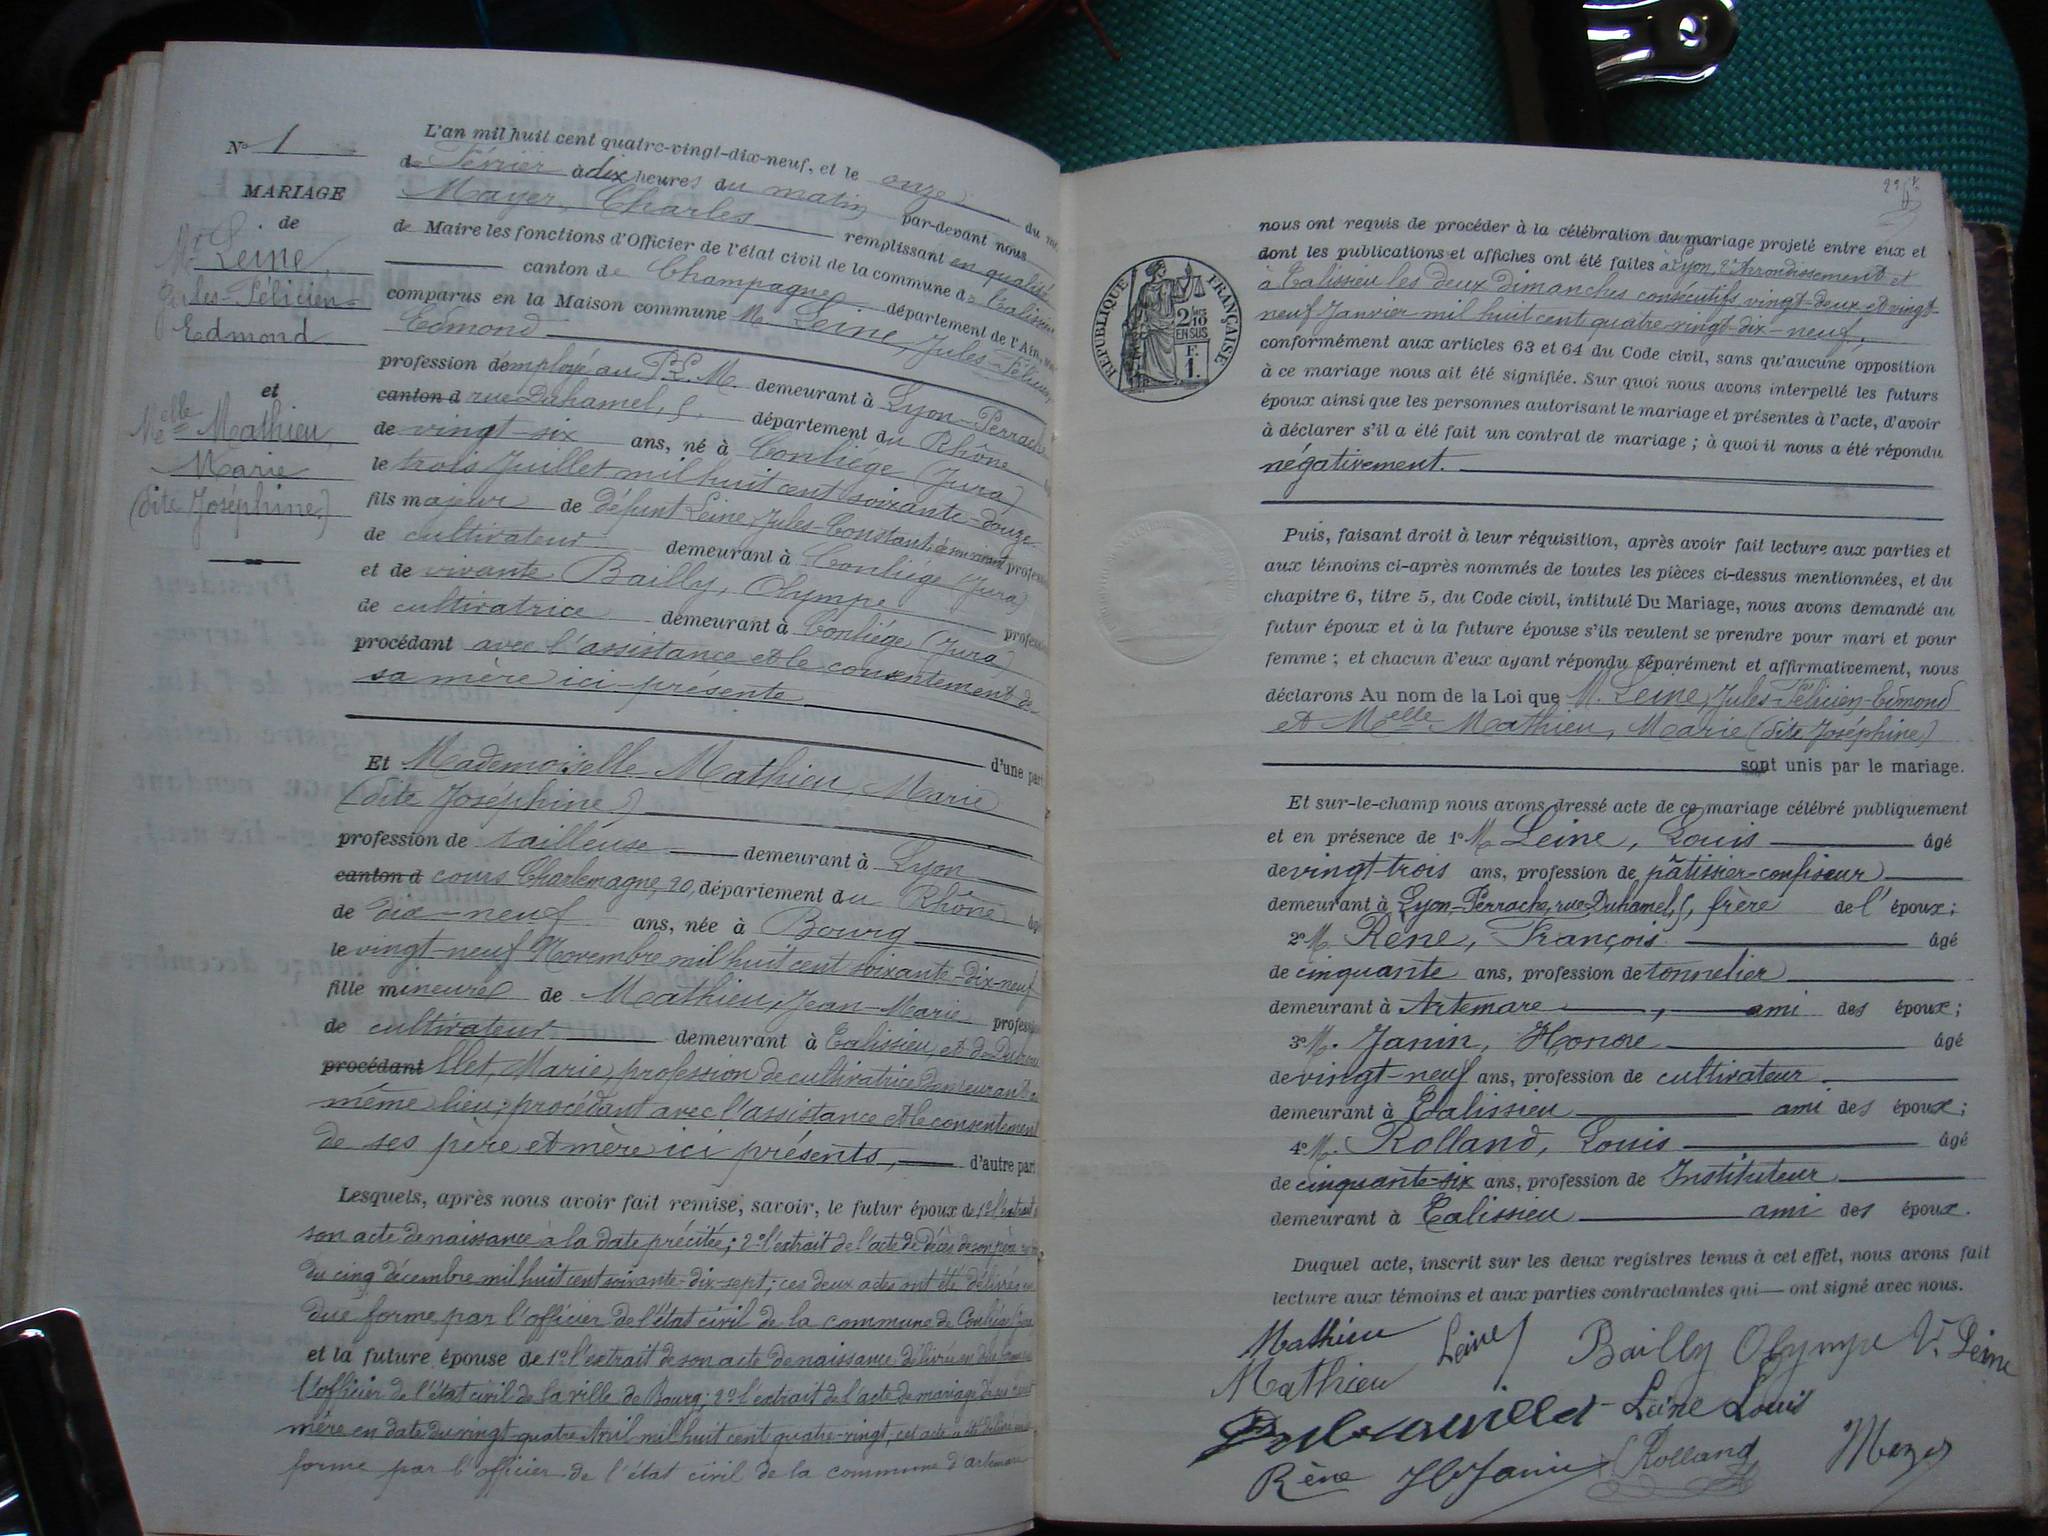 N° 1
MARIAGE
de
Mr Leine,
Jules-Félicien-
Edmond
et
Melle Mathieu,
Marie
(dite Joséphine)
L'an mil huit cent quatre-vingt-dix-neuf, et le onze du
de Février à dix heures du matin par-devant nous
Mayer, Charles remplissant en qualité
de Maire les fonctions d'Officier de l'état civil de la commune de Talissieu
canton de Champagne département de l'Ain,
comparus en la Maison commune M. Leine, Jules-Félicien
Edmond
profession d'employé au P.L.M. demeurant à Lyon-Perrache
canton d rue Duhamel, 5, département du Rhône
de vingt-six ans, né à Conliège (Jura)
le trois Juillet mil huit cent soixante-douze
fils majeur de défunt Leine, Jules-Constant, en son vivant
de cultivateur demeurant à Conliège (Jura)
et de vivante Bailly, Olympe
de cultivatrice demeurant à Conliège (Jura)
procédant avec l'assistance et le consentement de
sa mère ici présente
d'une part
Et Mademoiselle Mathieu, Marie
(dite Joséphine)
profession de tailleuse demeurant à Lyon
canton d cours Charlemagne, 20, département du Rhône
de dix-neuf ans, née à Bourg
le vingt-neuf Novembre mil huit cent soixante-dix-neuf
fille mineure de Mathieu, Jean-Marie
de cultivateur demeurant à Talissieu, et de
procédant Marie, profession de cultivatrice demeurant
même lieu; procédant avec l'assistance et le consentement
de ses père et mère ici présents, d'autre part
Lesquels, après nous avoir fait remise, savoir, le futur époux de 1° l'extrait
son acte de naissance à la date précitée; 2° l'extrait de l'acte de décès de son père
du cinq décembre mil huit cent soixante-dix-sept; ces deux actes ont été délivrés en
due forme par l'officier de l'état civil de la commune de Conliège
et la future épouse de 1° l'extrait de son acte de naissance délivré en due forme
l'officier de l'état civil de la ville de Bourg; 2° l'extrait de l'acte de mariage de ses
mère en date du vingt-quatre Avril mil huit cent quatre-vingt, cet acte a été délivré
forme par l'officier de l'état civil de la commune d'Artemare
nous ont requis de procéder à la célébration du mariage projeté entre eux et
dont les publications et affiches ont été faites à Lyon, 2e Arrondissement et
à Talissieu les deux dimanches consécutifs vingt-deux et vingt-
neuf Janvier mil huit cent quatre-vingt-dix-neuf,
conformément aux articles 63 et 64 du Code civil, sans qu'aucune opposition
à ce mariage nous ait été signifiée. Sur quoi nous avons interpellé les futurs
époux ainsi que les personnes autorisant le mariage et présentes à l'acte, d'avoir
à déclarer s'il a été fait un contrat de mariage; à quoi il nous a été répondu
négativement.
RÉPUBLIQUE FRANÇAISE
2/10
EN SUS
F.
1.
Puis, faisant droit à leur réquisition, après avoir fait lecture aux parties et
aux témoins ci-après nommés de toutes les pièces ci-dessus mentionnées, et du
chapitre 6, titre 5, du Code civil, intitulé Du Mariage, nous avons demandé au
futur époux et à la future épouse s'ils veulent se prendre pour mari et pour
femme; et chacun d'eux ayant répondu séparément et affirmativement, nous
déclarons Au nom de la Loi que M. Leine, Jules-Félicien-Edmond
et Melle Mathieu, Marie (dite Joséphine)
sont unis par le mariage.
Et sur-le-champ nous avons dressé acte de ce mariage célébré publiquement
et en présence de 1° M. Leine, Louis âgé
de vingt-trois ans, profession de pâtissier-confiseur
demeurant à Lyon-Perrache, rue Duhamel, 5, frère de l'époux;
2° M. Rène, François âgé
de cinquante ans, profession de tonnelier
demeurant à Artemare, ami des époux;
3° M. Janin, Honoré âgé
de vingt-neuf ans, profession de cultivateur
demeurant à Talissieu ami des époux;
4° M. Rolland, Louis âgé
de cinquante-six ans, profession de Instituteur
demeurant à Talissieu ami des époux.
Duquel acte, inscrit sur les deux registres tenus à cet effet, nous avons fait
lecture aux témoins et aux parties contractantes qui ont signé avec nous.
Mathieu Leine J Bailly Olympe Ve Leine
Mathieu
Leine Louis
Rène H Janin Rolland Mayer